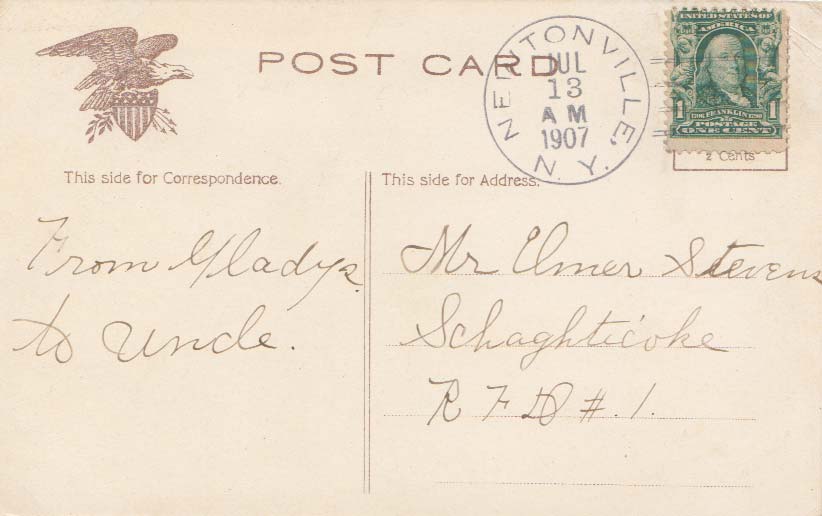 POST CARD
NEWTONVILLE, N. Y.
JUL
13
A M
1907
UNITED STATES OF
AMERICA
1 FRANKLIN 1
POSTAGE
ONE CENT
2 Cents
This side for Correspondence.
This side for Address.
From Gladys
to Uncle.
Mr Elmer Stevens
Schaghticoke
R F D #. 1.